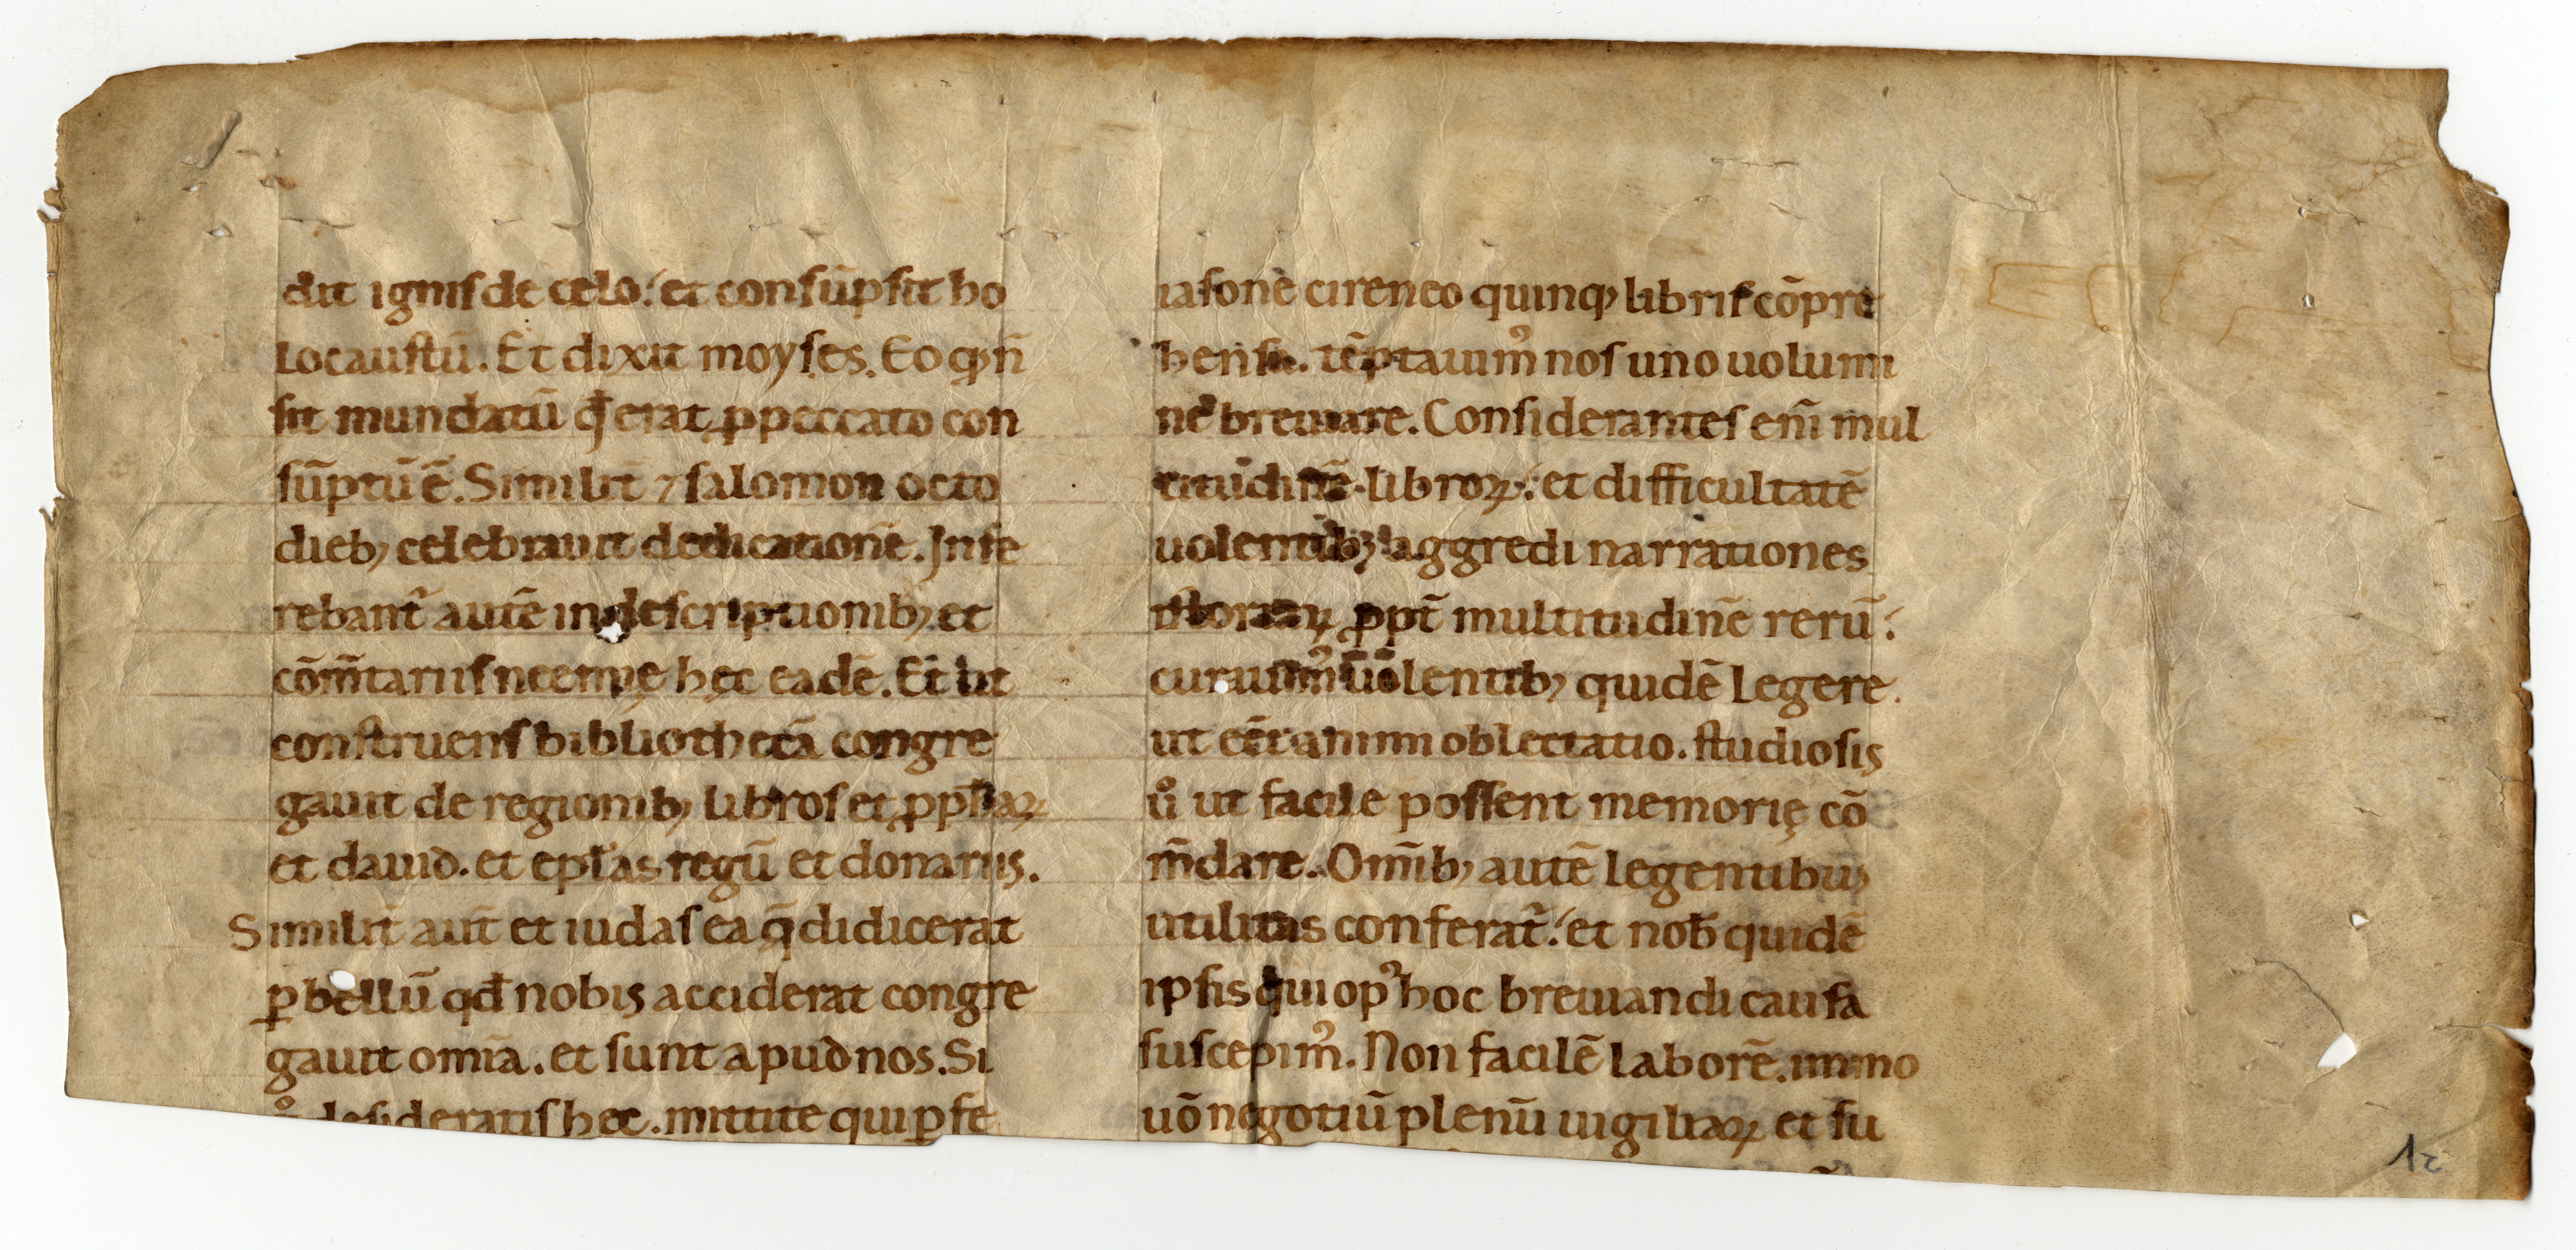 dit ignis de celo: et consūpsit ho
locaustū. Et dixit moyses. Eo qđ n̄
sit mundatū qđ erat ꝓ peccato con
sūptū ē. Similit̄ ⁊ salomon octo
dieb; celebrauit dedicationē. Infe
rebant̄ autē in descriptionib; et
cōm̄tariis neemię hęc eadē. Et ut
construens bibliothecā congre
gauit de regionib; libros et ꝓph̄aꝝ
et dauid. et epl̄as regū et donariis.
Similit̄ aut̄ et iudas ea q̄ didicerat
ꝑ bellū qđ nobis acciderat congre
gauit omīa. et sunt apud nos. Si
desideratis hec. mittite qui ꝑfe
iasone cireneo quinq; libris cōpre
hensa. tēptauim᾽ nos uno uolumi
ne breuiare. Considerantes enī mul
titudinē libroꝝ: et difficultatē
uolentib; aggredi narrationes
istoriaꝝ ꝓpt̄ multitudinē rerū:
curauim᾽ uolentib; quidē legere
ut eēt animi oblectatio. studiosis
uͦ ut facile possent memorię cō
m̄dare. Omīb; autē legentibus
utilitas conferat̄: et nob̄ quidē
ipsis qui op᾽ hoc breuiandi causa
suscepim᾽. Non facilē laborē. immo
uō negotiū plenū uigiliaꝝ et su